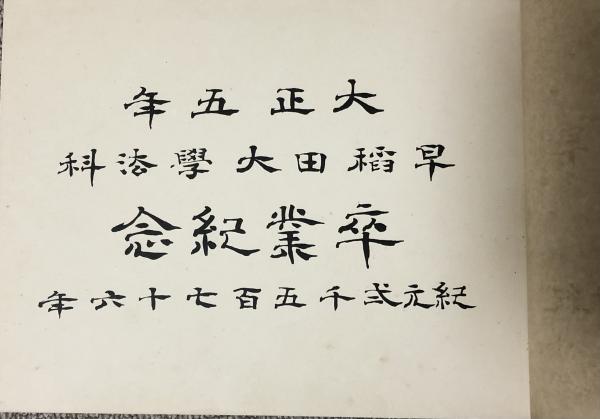 大正五年
早稻田大學法科
卒業紀念
紀元弐千五百七十六年